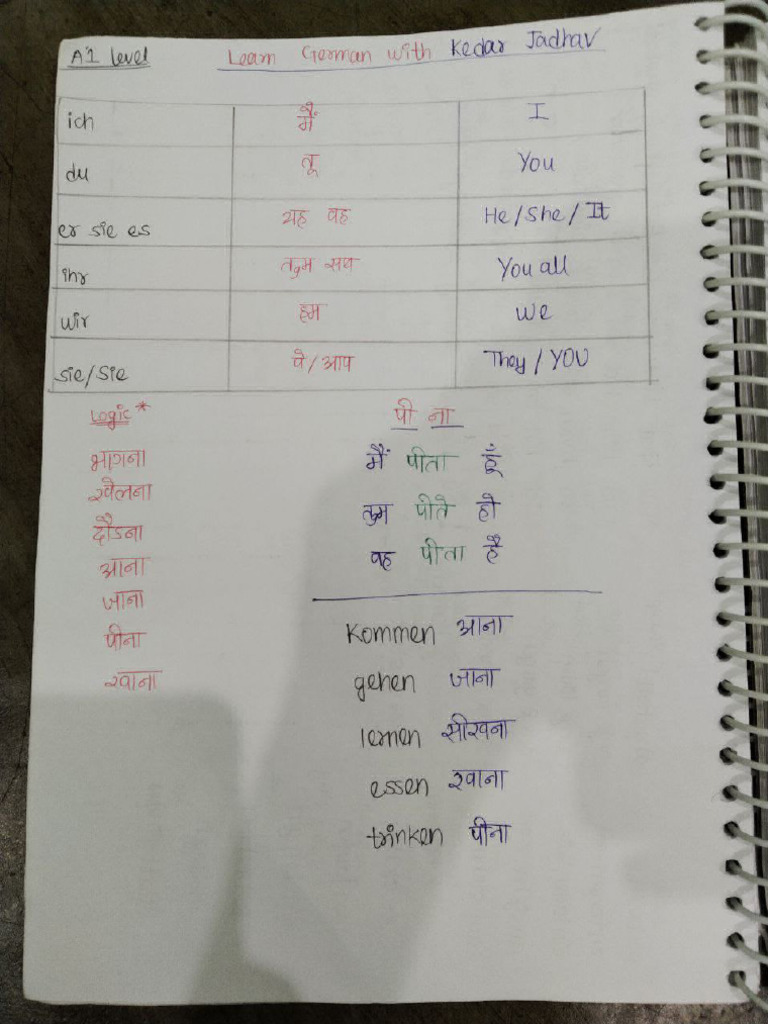 A1 level Learn German with Kedar Jadhav
ich मैं I
du तू You
er sie es यह वह He/She/It
ihr तुम सब You all
wir हम we
sie/Sie वे/आप They/YOU
Logic* पी ना
भागना
खेलना
दौडना
आना
जाना
पीना
खाना
मैं पीता हूँ
तुम पीते हो
वह पीता है
kommen आना
gehen जाना
lernen सीखना
essen खाना
trinken पीना